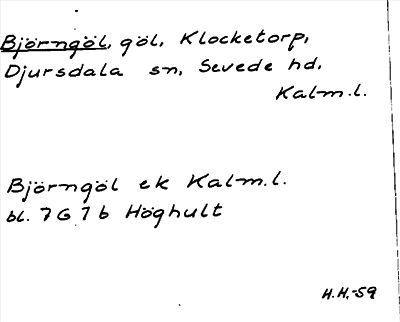 Björngöl, göl, Klocketorp,
Djursdala sn, Sevede hd.
Kalm.l.
Björngöl ek Kalm.l.
bl. 7G 7b Höghult
H.H.-59